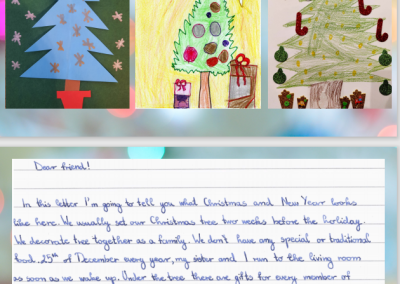 Dear friend!
In this letter I'm going to tell you what Christmas and New Year looks
like here. We usually set our Christmas tree two weeks before the holiday.
We decorate tree together as a family. We don't have any special or traditional
food. 25th of December every year, my sister and I run to the living room
as soon as we wake up. Under the tree there are gifts for every member of